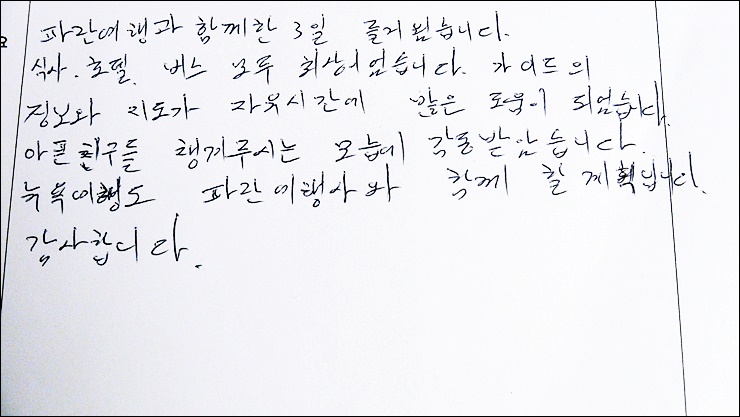 파란여행과 함께한 3일 즐거웠습니다.
식사. 호텔. 버스 모두 최상이었습니다. 가이드의
정보와 지도가 자유시간에 많은 도움이 되었습니다.
아픈 친구들 챙겨주시는 모습에 감동받았습니다.
뉴욕여행도 파란여행사와 함께 할 계획입니다.
감사합니다.